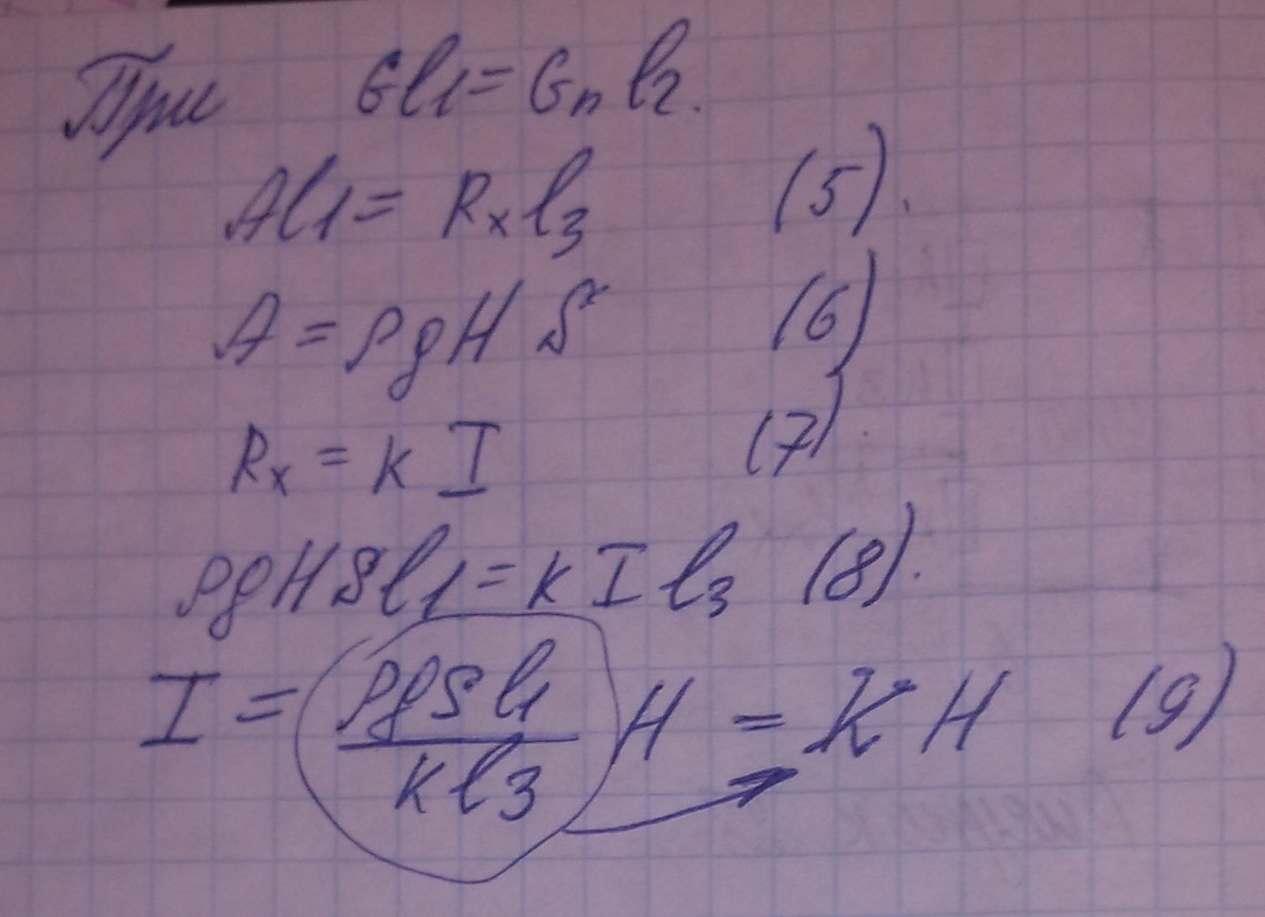 При Gl1 = Gп l2.
Al1 = Rx l3 (5).
A = ρgHS (6)
Rx = k I (7)
ρgHSl1 = k I l3 (8).
I = ρgSl1 / kl3 H = K H (9)